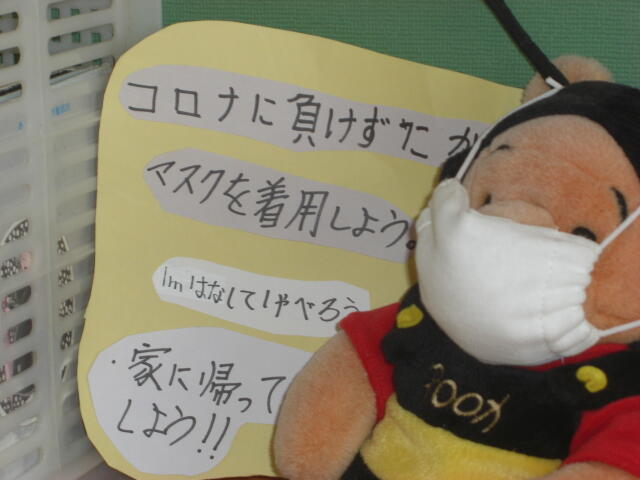 コロナに負けずたたか
マスクを着用しよう。
1mはなしてしゃべろう
・家に帰って
しよう!!
POOH